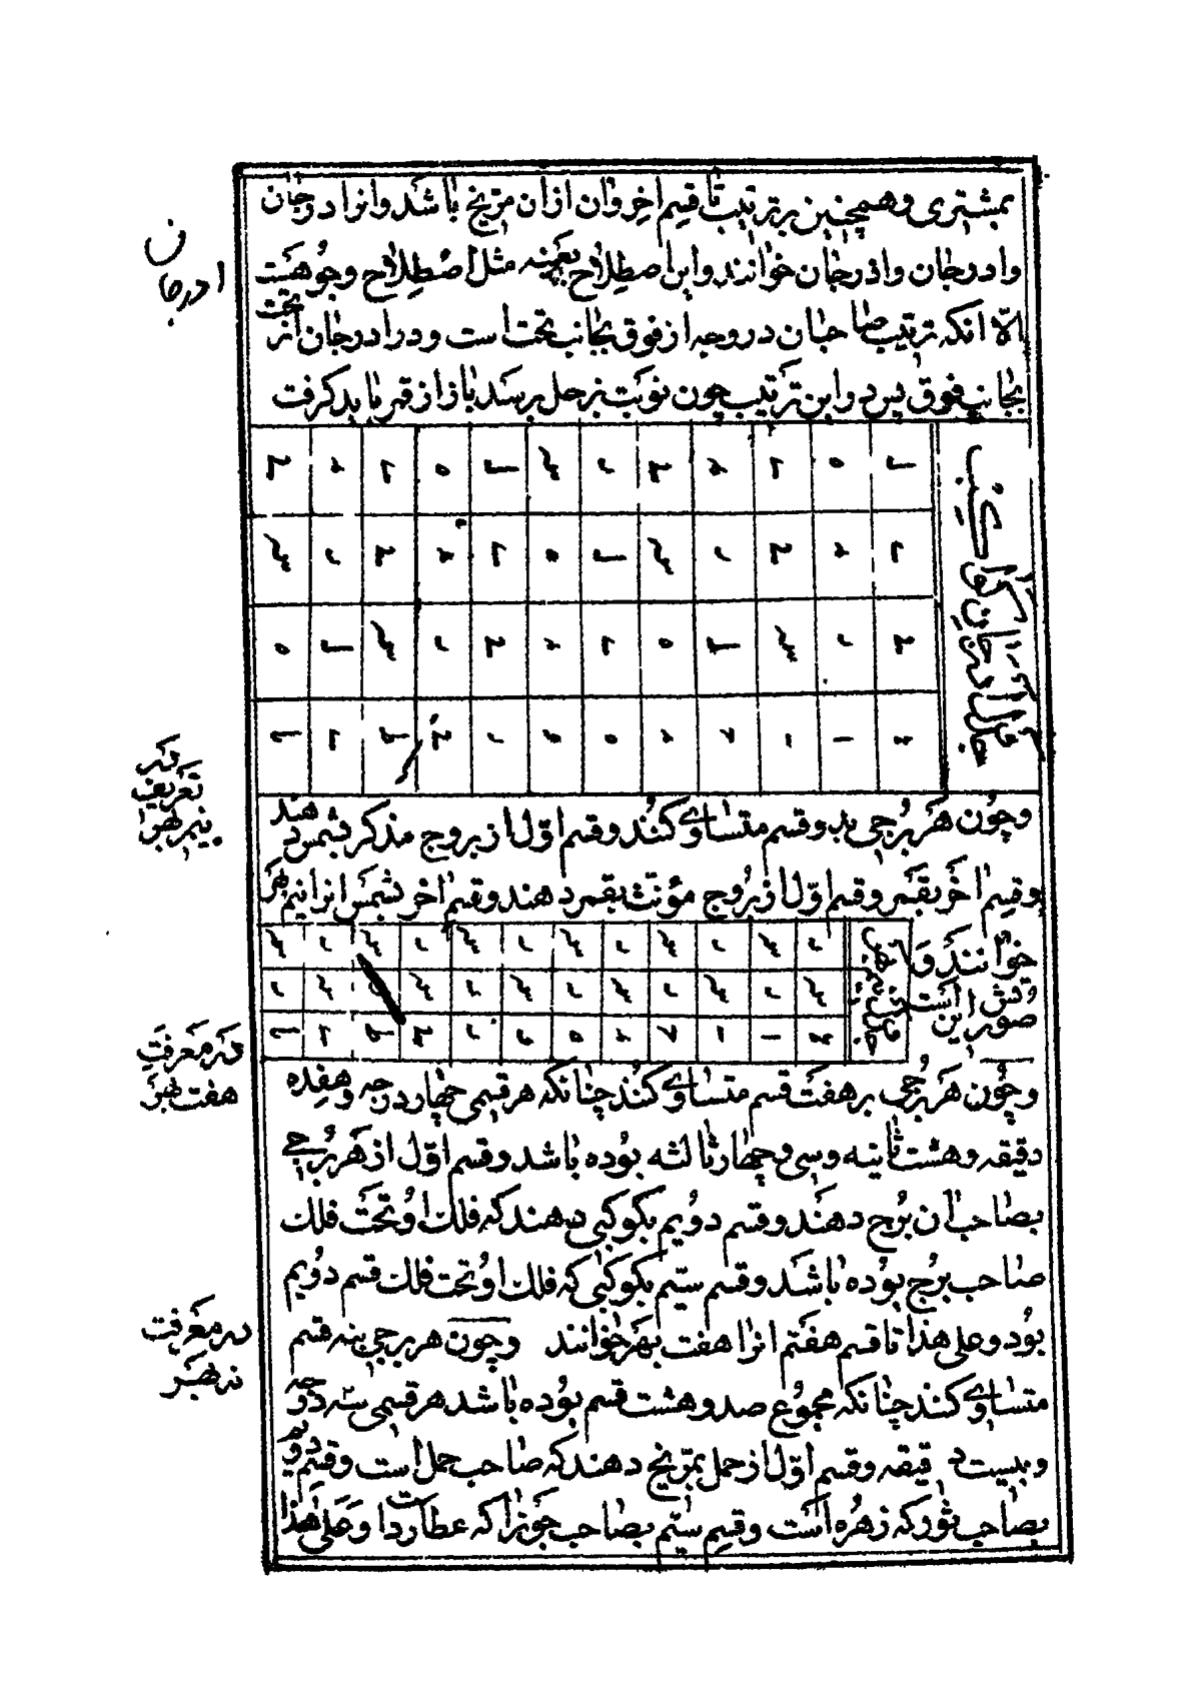 بمشتری و همچنین بر ترتیب تا قسم اخر و ان از ان مریخ باشد و انرا دوجان
و ادرجان و اذرجان خوانند و این اصطلاح بعینه مثل اصطلاح وجوهست
الا انکه ترتیب صاحبان در وجه از فوق بجانب تحت است و در ادرجان از تحت
بجانب فوق پس در این ترتیب چون نوبت بزحل برسد باز از قمر باید کرفت
ادرجان
جدول ادرجان کواکب
ل ه ے د ر س ل ه ے د
ے د ر س ل ه ے د ر س
ر س ل ه ے د ر س ل ه
در تعریف نیم بهر
و چون هر برجی بدو قسم متساوی کنند و قسم اول از بروج مذکر بشمس دهند
و قسم اخر بقمر و قسم اول از بروج مؤنث بقمر دهند و قسم اخر بشمس انرا نیم بهر
خوانند و
صورتش این است
جدول نیم بهر
ر س ر س ر س ر س ر س ر س
س ر س ر س ر س ر س ر س ر
در معرفت هفت بهر
و چون هر برجی بر هفت قسم متساوی کنند چنانکه هر قسمی چهار درجه و هفده
دقیقه و هشت ثانیه و سی و چهار ثالثه بوده باشد و قسم اول از هر برجی
بصاحب ان برج دهند و قسم دویم بکوکبی دهند که فلک او تحت فلک
صاحب برج بوده باشد و قسم سیم بکوکبی که فلک او تحت فلک قسم دویم
بود و علی هذا تا قسم هفتم انرا هفت بهر خوانند و چون هر برجی بنه قسم
در معرفت نه بهر
متساوی کنند چنانکه مجموع صد و هشت قسم بوده باشد هر قسمی سه درجه
و بیست دقیقه و قسم اول از حمل بمریخ دهند که صاحب حمل است و قسم دویم
بصاحب ثور که زهره است و قسم سیم بصاحب جوزا که عطارد است و علی هذا